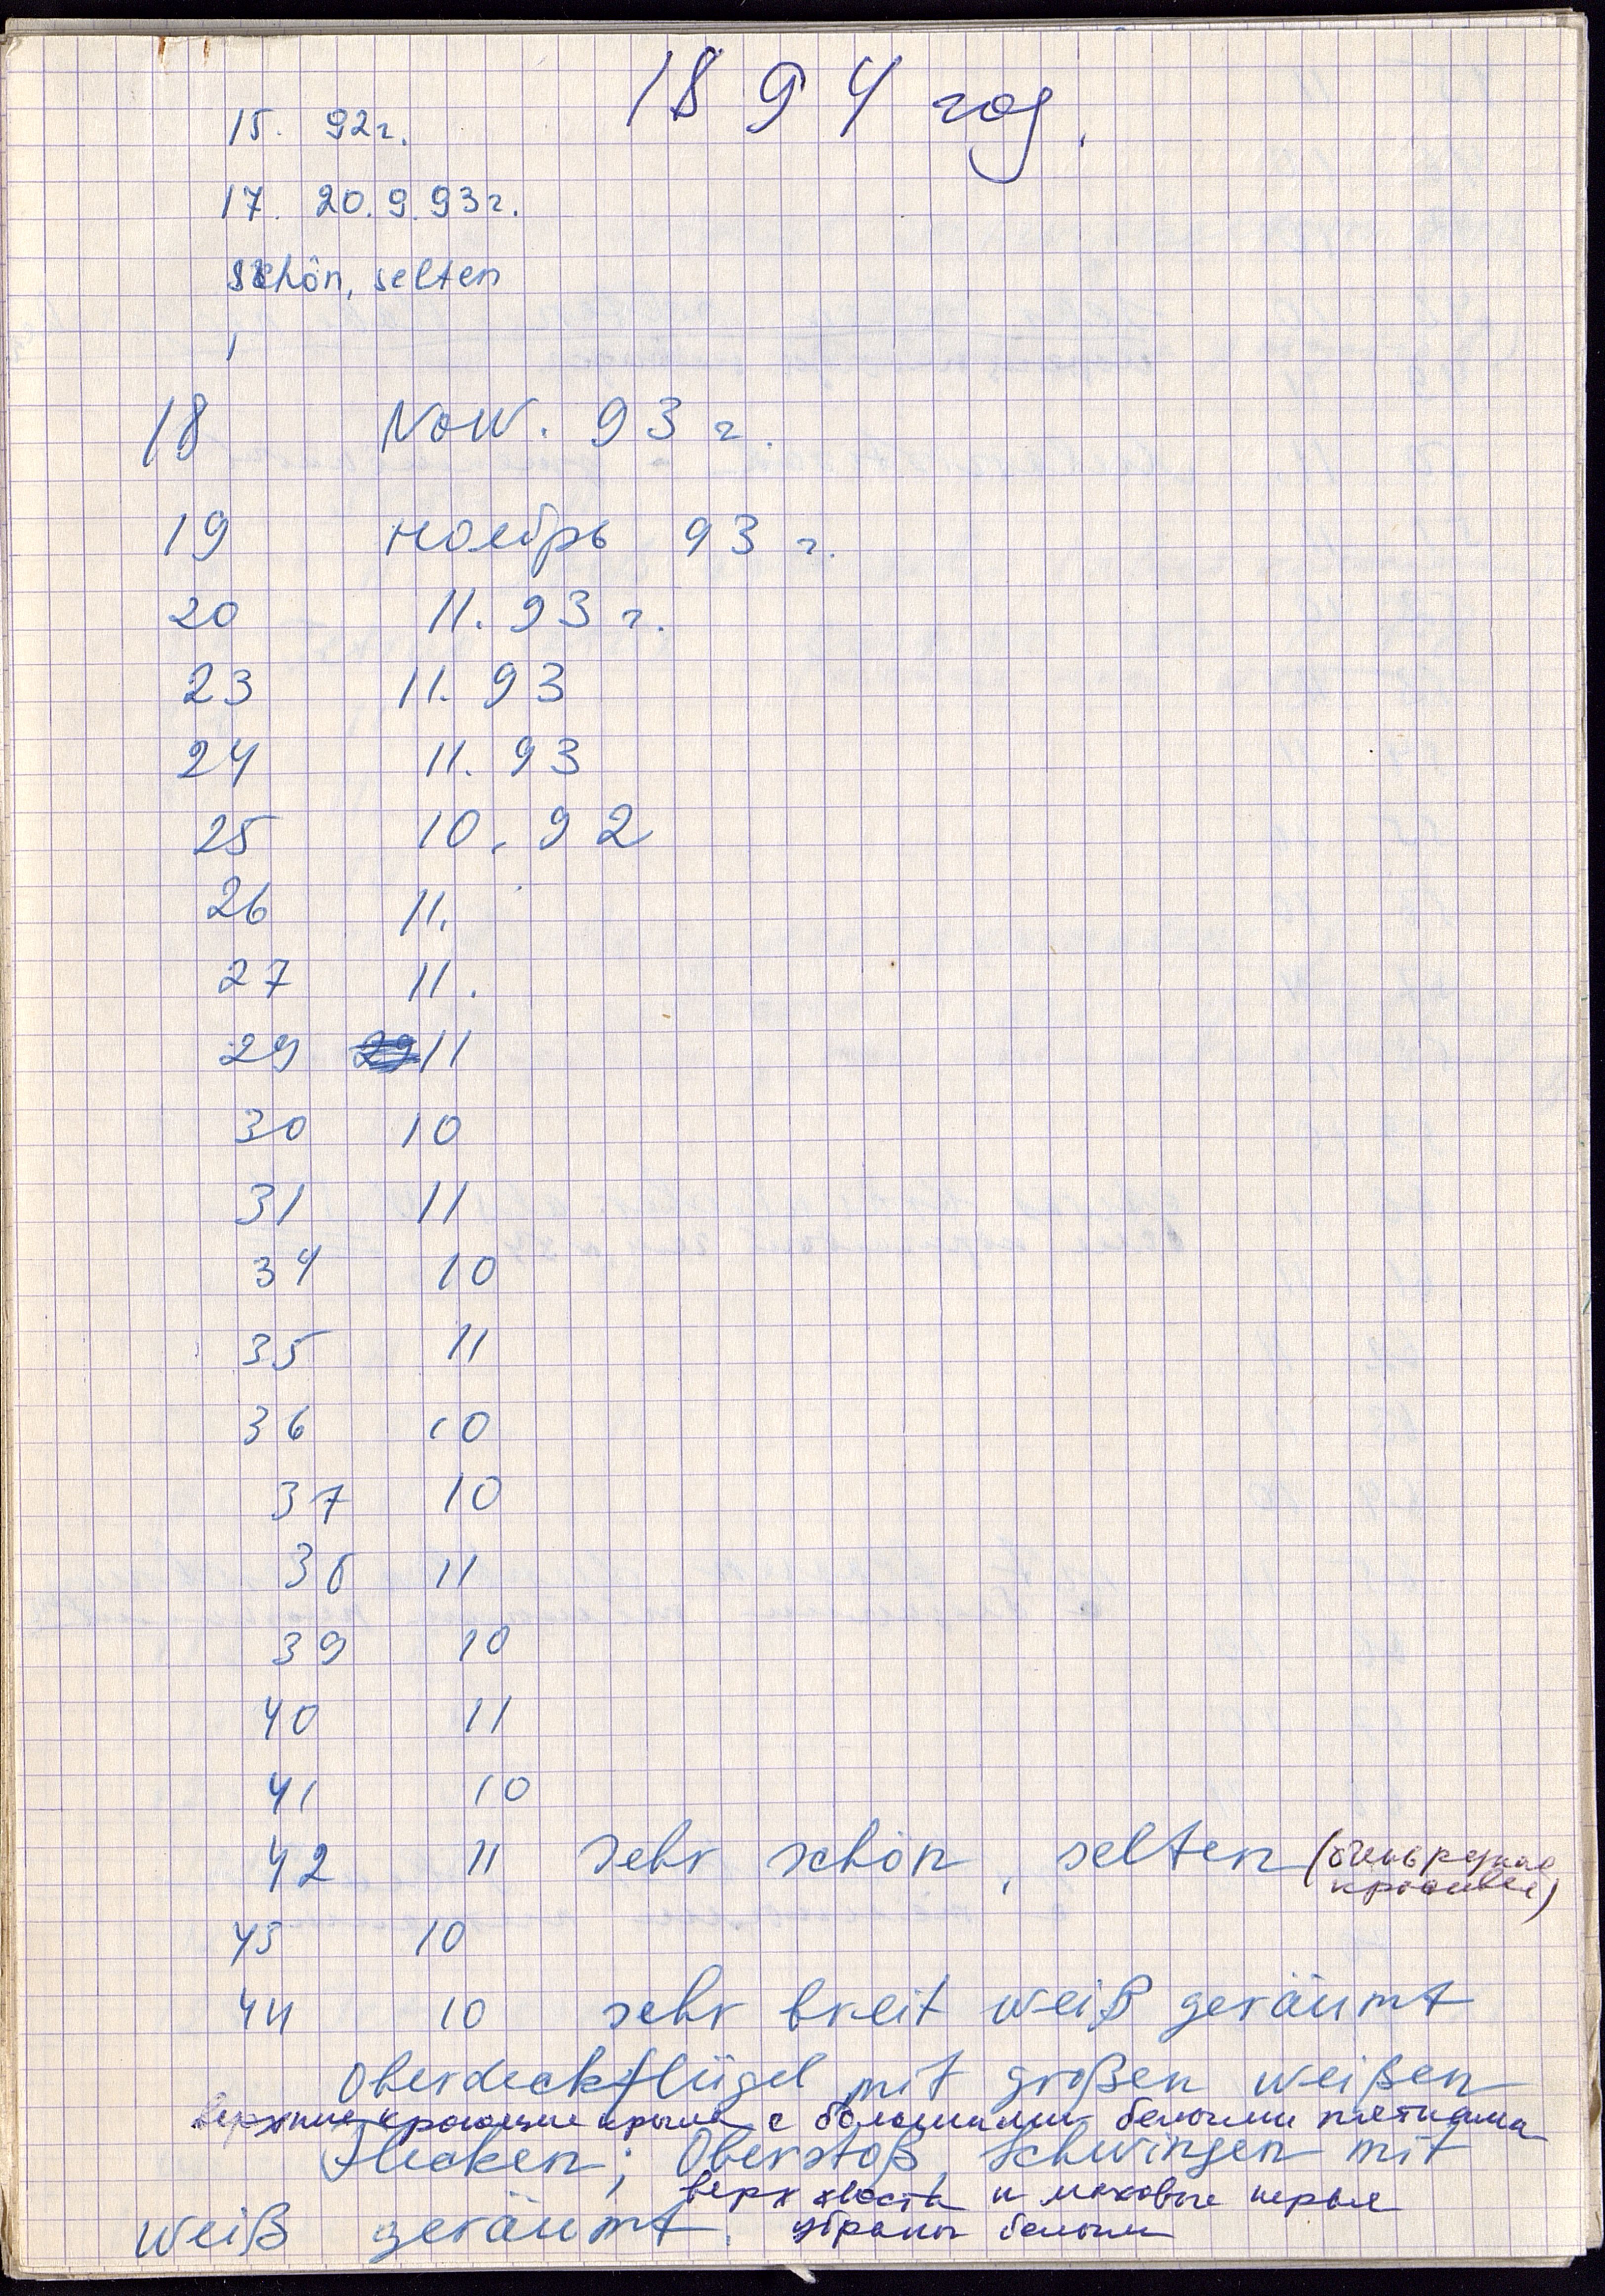 1894 год.
15. 92г.
17. 20.9.93г.
schön, selten
18 Now. 93 г.
19 ноябрь 93 г.
20 11. 93 г.
23 11. 93
24 11. 93
25 10. 92
26 11.
27 11.
29 11
30 10
31 11
34 10
35 11
36 10
37 10
38 11
39 10
40 11
41 10
42 11 sehr schön, selten (очень редкая
красивая)
43 10
44 10 sehr breit weiß geräumt
Oberdeckflügel mit großen weißen
верхние кроющие крыла с большими белыми пятнами
Flecken; Oberstoß, Schwingen mit
верх хвоста и маховые перья
weiß geräumt. убраны белым